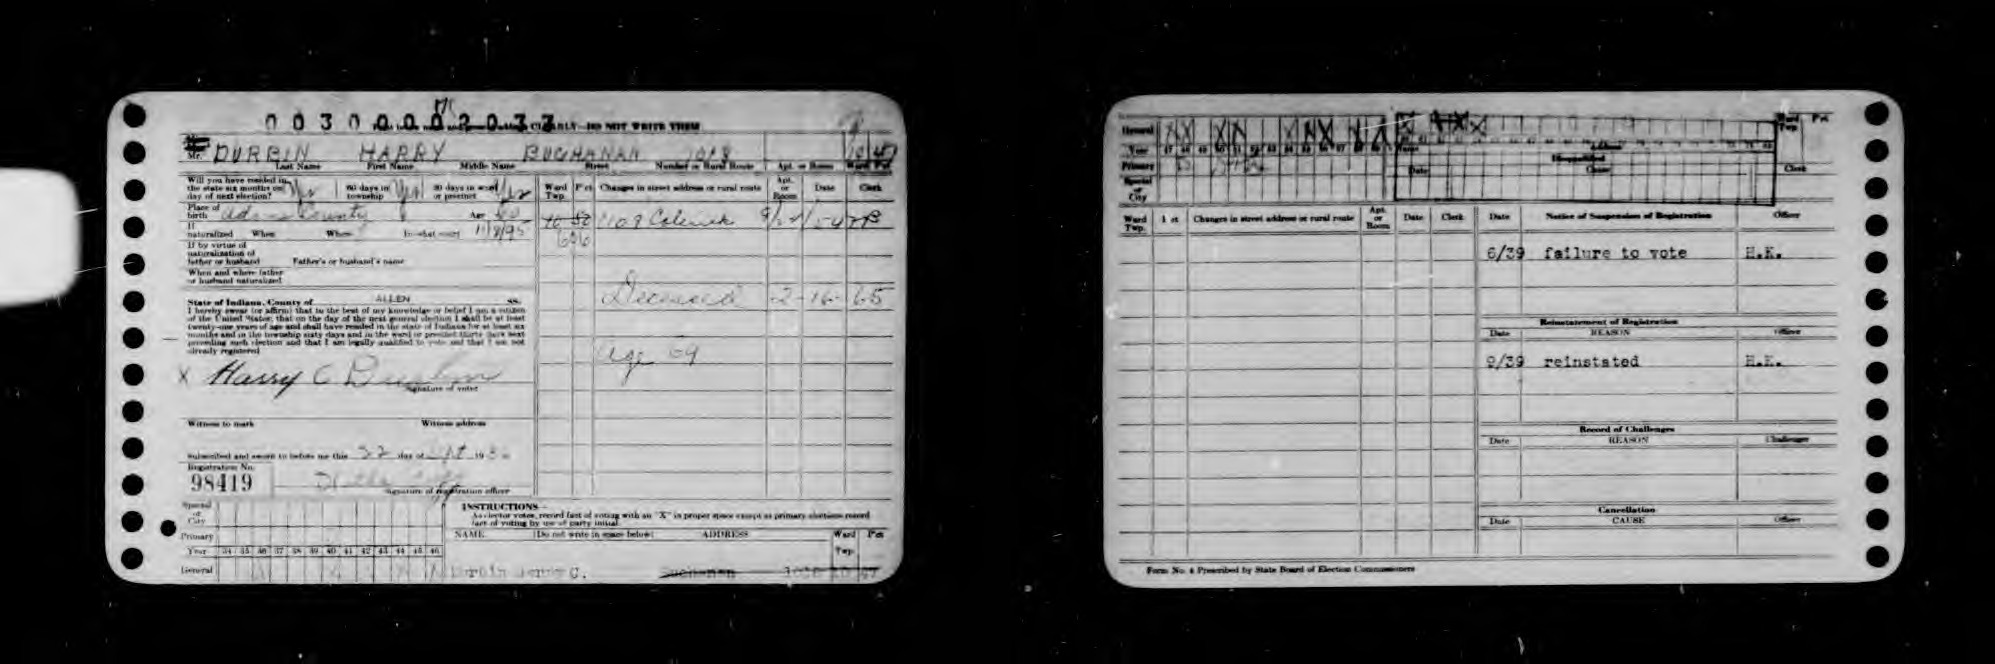 0 0 3 0 0 0 0 2 0 3 3
CLEARLY—DO NOT WRITE THEM
Mr. DURBIN HARRY BUCHANAN 1028 10 47
Last Name First Name Middle Name Street Number or Rural Route Apt. or Room Ward Pct
Will you have resided in the state six months on day of next election? Yes 60 days in township Yes 30 days in ward or precinct Yes
Ward Twp. Pct Changes in street address or rural route Apt. or Room Date Clerk
Place of birth Adams County Age
If naturalized When Where In what court 11/8/95
1109
If by virtue of naturalization of father or husband Father's or husband's name
When and where father or husband naturalized
Deceased 2-16-65
State of Indiana, County of ALLEN ss.
I hereby swear (or affirm) that to the best of my knowledge or belief I am a citizen
of the United States; that on the day of the next general election I shall be at least
twenty-one years of age and shall have resided in the state of Indiana for at least six
months and in the township sixty days and in the ward or precinct thirty days next
preceding such election and that I am legally qualified to vote and that I am not
already registered
age 69
X Harry C Durbin
Signature of voter
Witness to mark Witness address
Subscribed and sworn to before me this 22 day of Sept 193
Registration No.
98419
Signature of registration officer
Special or City
INSTRUCTIONS—
As elector votes, record fact of voting with an "X" in proper space except at primary elections record
fact of voting by use of party initial.
Primary
NAME (Do not write in space below) ADDRESS Ward Twp. Pct
Year 34 35 36 37 38 39 40 41 42 43 44 45 46
General Durbin C. Buchanan 1028 10 47
General
Year 47 48 49 50 51 52 53 54 55 56 57
Primary
Special or City
Name Address
Date Cause
Ward Twp. Pct
Clerk
Ward Twp. Pct Changes in street address or rural route Apt. or Room Date Clerk Date Notice of Suspension of Registration Officer
6/39 failure to vote H.K.
Reinstatement of Registration
Date REASON Officer
9/39 reinstated H.K.
Record of Challenges
Date REASON Challenger
Cancellation
Date CAUSE Officer
Form No. 4 Prescribed by State Board of Election Commissioners